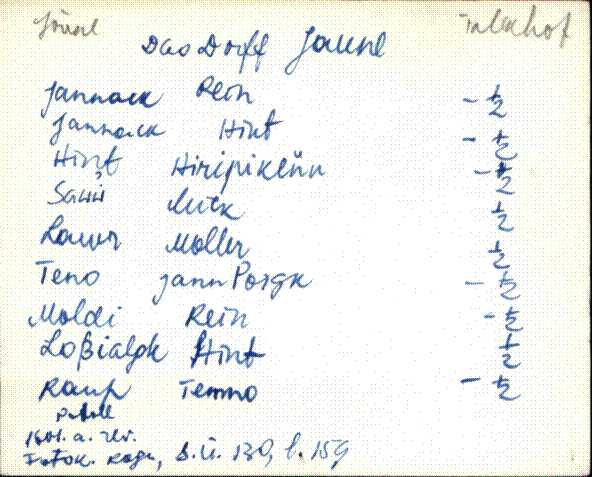 Jõune Talkhof
Das Dorff Jaune
Jannack Rein - ½
Jannack Hint - ½
Hint Hiripikeün - ½
Sawi Muck ½
Laur Moller ½
Teno Jann Poigk - ½
Moldi Rein - ½
Loßialgk Hint ½
Raup Temmo - ½
1601. a. rev.
Fotok. kogu, s.ü. 130, l. 159